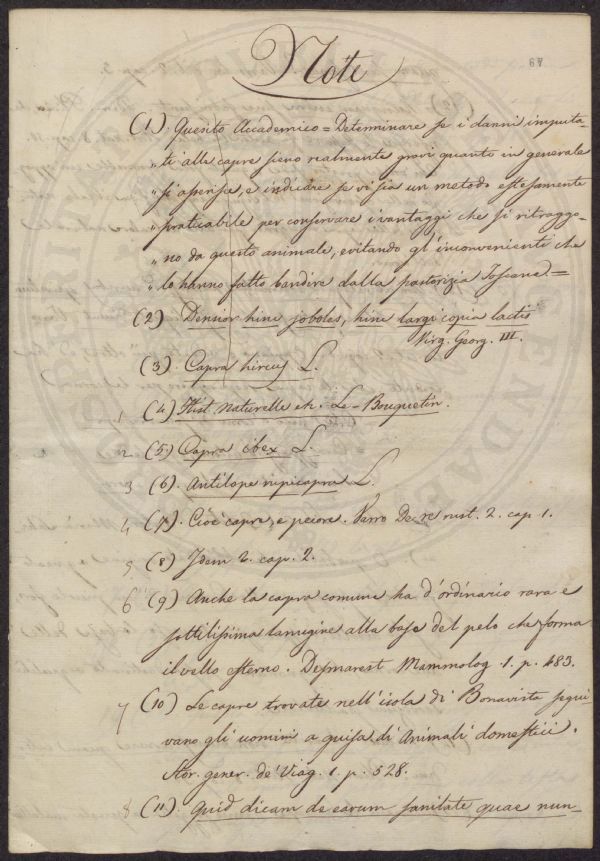 Note
67
(1) Quesito Accademico = Determinare se i danni imputa-
" ti alle capre sieno realmente gravi quanto in generale
" si asserisce, e indicare se vi sia un metodo estesamente
" praticabile per conservare i vantaggi che si ritraggo-
" no da questo animale, evitando gl'inconvenienti che
" lo hanno fatto bandire dalla pastorizia Toscana =
(2) Densior hinc soboles, hinc largi copia lactis
Virg. Georg. III.
(3) Capra hircus L.
1 (4) Hist. naturelle etc. Le-Bouquetin.
2 (5) Capra ibex L.
3 (6). Antilope rupicapra L.
4 (7). Cioè capre, e pecore. Varro De re rust. 2. cap. 1.
5 (8) Idem 2. cap. 2.
6 (9) Anche la capra comune ha d'ordinario rara e
sottilissima lanugine alla base del pelo che forma
il vello esterno. Desmarest Mammolog. 1. p. 483.
7 (10) Le capre trovate nell'isola di Bonavista segui-
vano gli uomini a guisa di Animali domestici.
Stor. gener. de' Viag. 1. p. 528.
8 (11). Quid dicam de earum sanitate quae nun-